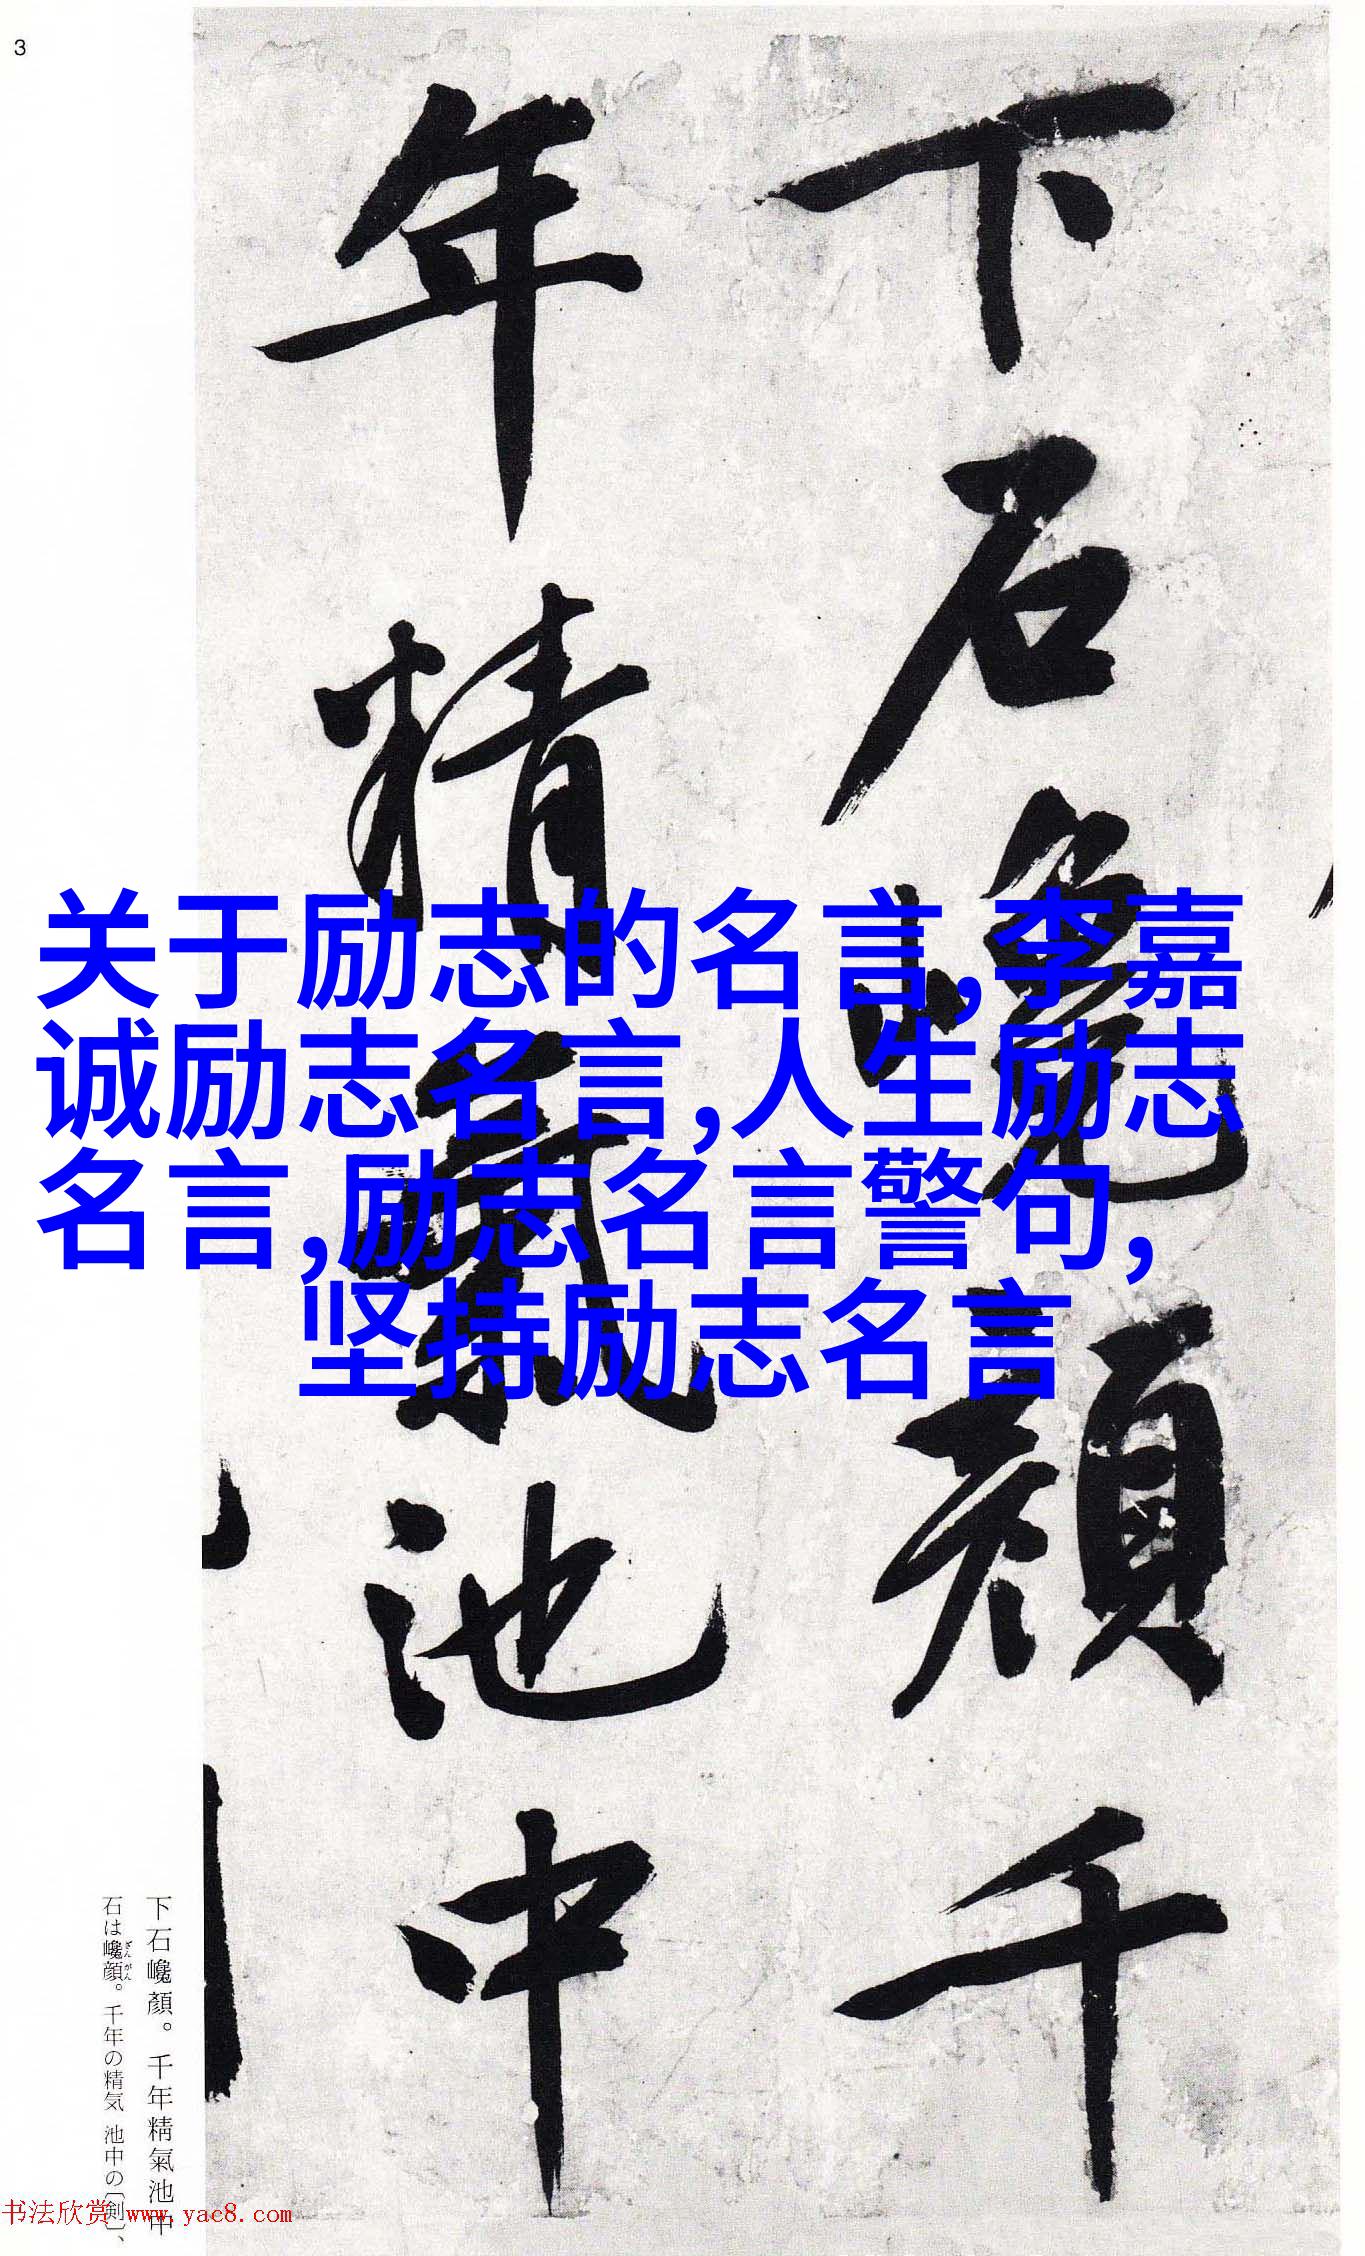 3
下石巉顏千
年精氣池中
关于励志的名言,李嘉
诚励志名言,人生励志
名言,励志名言警句,
坚持励志名言
下石巉顏。千年精氣池中
石は巉顔。千年の精気 池中の〔剣〕、
ざん がん
书法欣赏 www.yac8.com